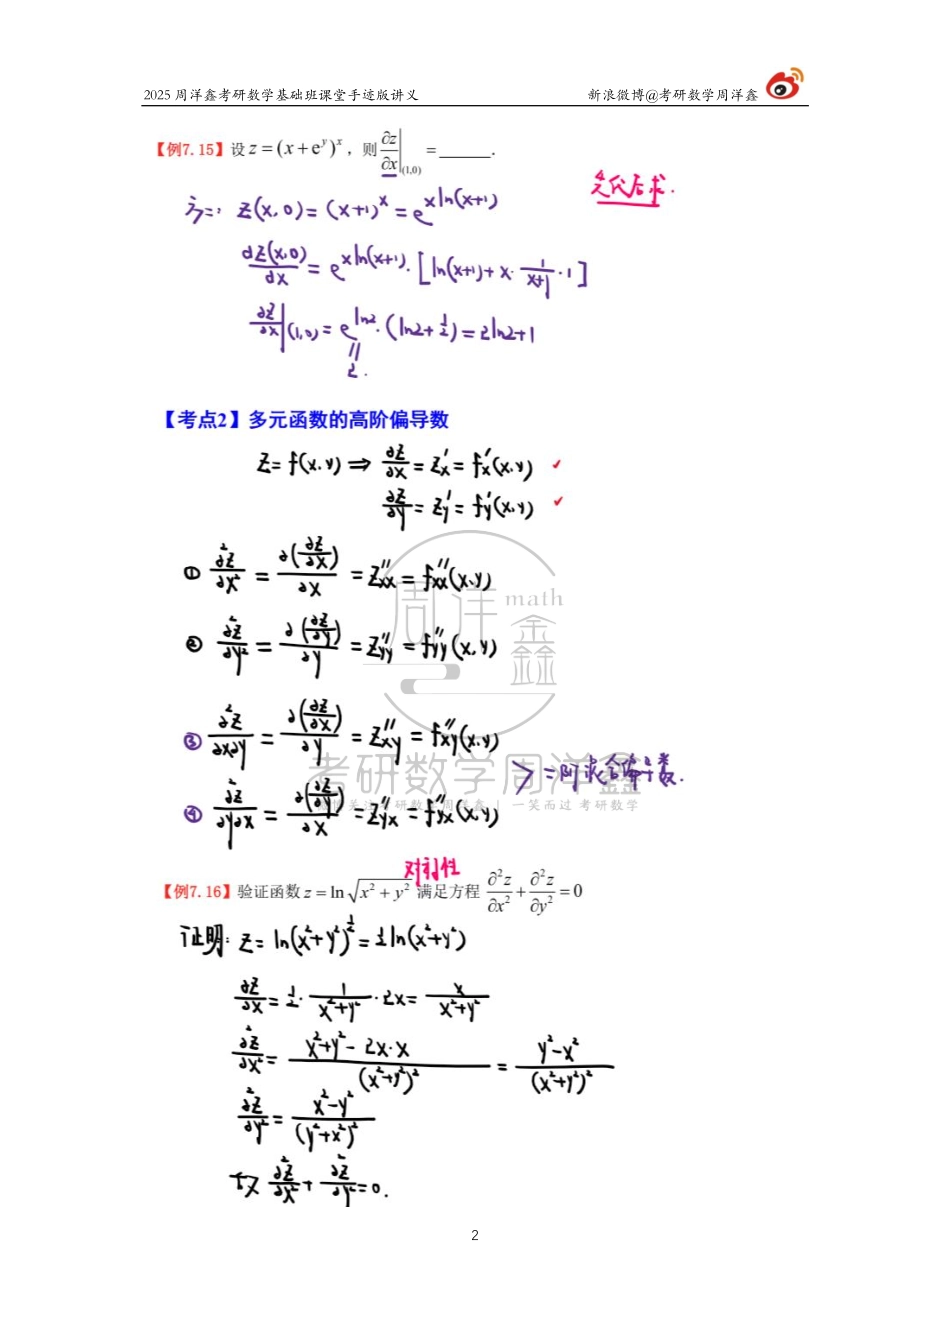 2025 周洋鑫考研数学基础班课堂手迹版讲义 新浪微博@考研数学周洋鑫
【例7.15】设 z = (x + e^y)^x ，则 ∂z/∂x |(1,0) = ______.
先代后求.
方二: z(x,0) = (x+1)^x = e^{xln(x+1)}
dz(x,0)/dx = e^{xln(x+1)}·[ln(x+1) + x·1/(x+1)·1]
∂z/∂x |(1,0) = e^{ln2}·(ln2 + 1/2) = 2ln2+1
||
2.
【考点2】多元函数的高阶偏导数
z = f(x,y) ⇒ ∂z/∂x = z'x = f'x(x,y) ✓
∂z/∂y = z'y = f'y(x,y) ✓
① ∂²z/∂x² = ∂(∂z/∂x)/∂x = z''xx = f''xx(x,y)
② ∂²z/∂y² = ∂(∂z/∂y)/∂y = z''yy = f''yy(x,y)
周洋鑫 math
③ ∂²z/∂x∂y = ∂(∂z/∂x)/∂y = z''xy = f''xy(x,y)
> 二阶混合偏导数.
考研数学周洋鑫
④ ∂²z/∂y∂x = ∂(∂z/∂y)/∂x = z''yx = f''yx(x,y)
关注考研数学周洋鑫 | 一笑而过 考研数学
对称性
【例7.16】验证函数 z = ln√(x² + y²) 满足方程 ∂²z/∂x² + ∂²z/∂y² = 0
证明: z = ln(x²+y²)^{1/2} = 1/2 ln(x²+y²)
∂z/∂x = 1/2 · 1/(x²+y²) · 2x = x/(x²+y²)
∂²z/∂x² = (x²+y² - 2x·x)/(x²+y²)² = (y²-x²)/(x²+y²)²
∂²z/∂y² = (x²-y²)/(y²+x²)²
故 ∂²z/∂x² + ∂²z/∂y² = 0.
2